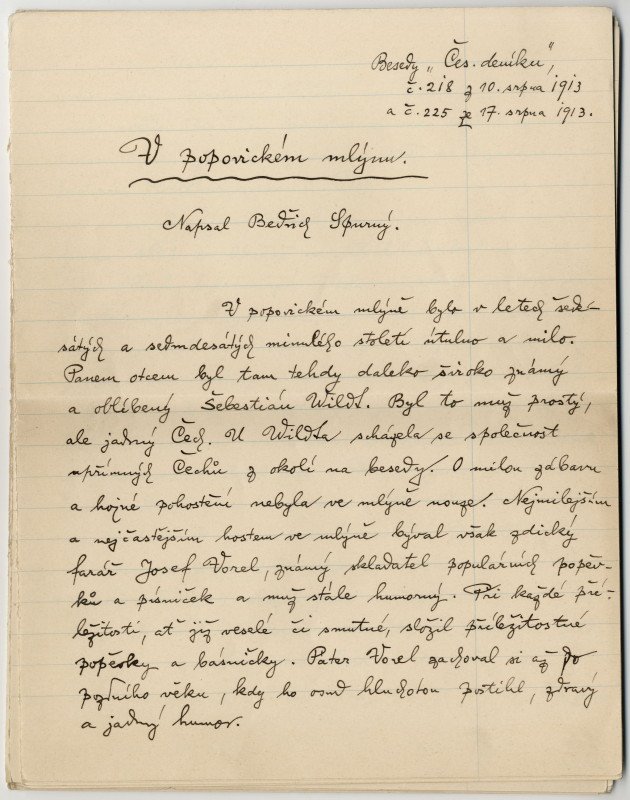 Besedy „Čes. deníku",
č. 218 z 10. srpna 1913
a č. 225 ze 17. srpna 1913.
V popovickém mlýnu.
Napsal Bedřich Spurný.
V popovickém mlýně bylo v letech šede-
sátých a sedmdesátých minulého století útulno a milo.
Panem otcem byl tam tehdy daleko široko známý
a oblíbený Šebestián Wildt. Byl to muž prostý,
ale jadrný Čech. U Wildta scházela se společnost
upřímných Čechů z okolí na besedy. O milou zábavu
a hojné pohostění nebyla ve mlýně nouze. Nejmilejším
a nejčastějším hostem ve mlýně býval však zdický
farář Josef Vorel, známý skladatel populárních popěv-
ků a písniček a muž stále humorný. Při každé pří-
ležitosti, ať již veselé či smutné, složil příležitostné
popěvky a básničky. Páter Vorel zachoval si až do
pozdního věku, kdy ho osud hluchotou postihl, zdravý
a jadrný humor.